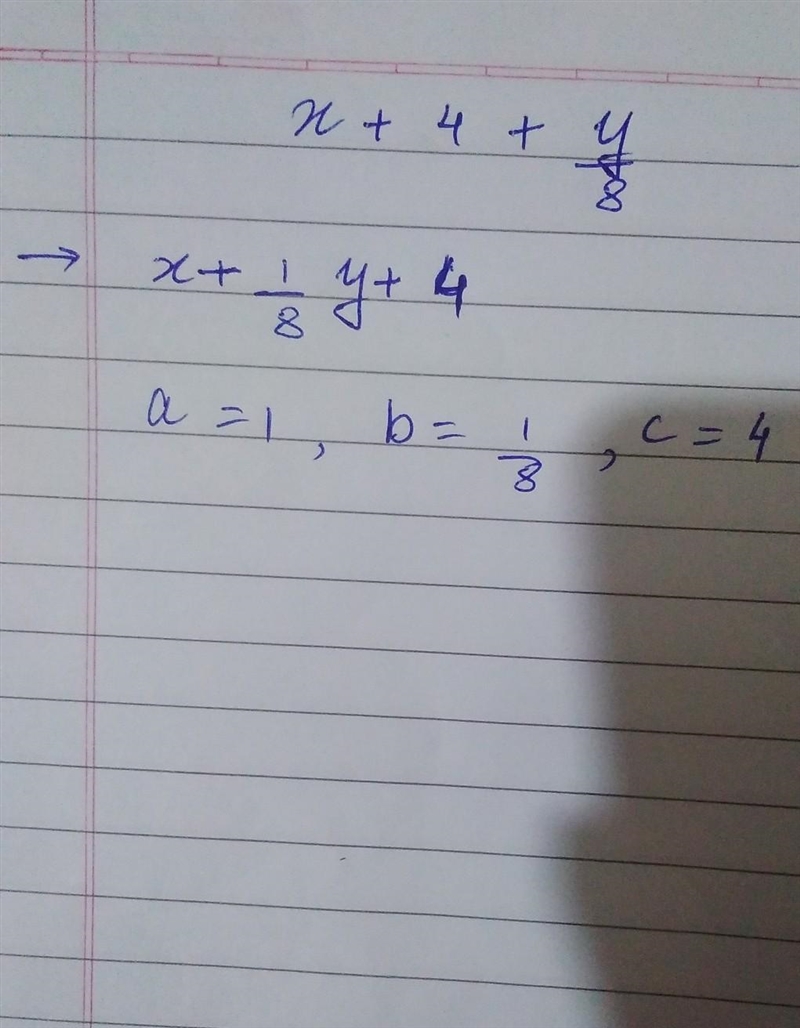 x + 4 + y/8
→ x + 1/8 y + 4
a = 1, b = 1/8, c = 4